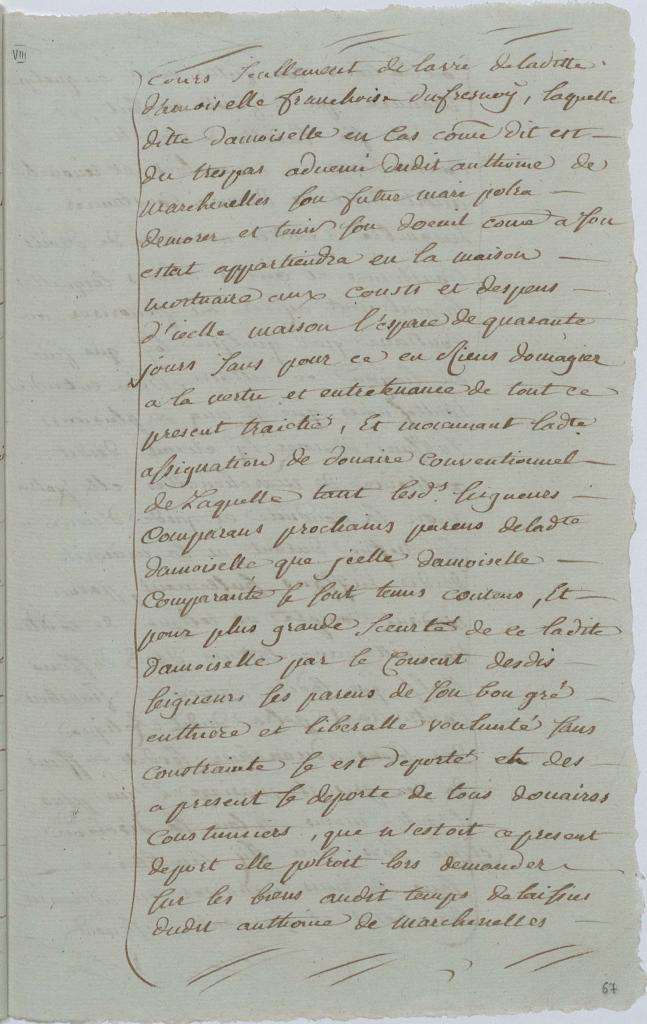 VIII
cours seullement de la vie de laditte
damoiselle franchoise dufresnoÿ, laquelle
ditte damoiselle en cas come dit est
du trespas advenu dudit anthoine de
Marchenelles son futur mari polra
demorer et tenir son doeuil come a son
estat appartiendra en la maison
mortuaire aux cousts et despens
d'icelle maison l'espace de quarante
jours sans pour ce en Riens domagier
a la vertu et entretenance de tout ce
present traictié, Et moienant ladte
assignation de douaire conventionnel
de Laquelle tant lesds seigneurs
Comparans prochains parens de ladte
damoiselle que jcelle damoiselle
Comparante se sont tenus contens, Et
pour plus grande sceurté de ce ladite
damoiselle par le Consent desdis
seigneurs ses parens de son bon gré
enthiere et liberalle voulunté sans
constrainte se est deporté et des
a present se deporte de tous douaires
Coustumiers, que n'estoit ce present
deport elle polroit lors demander
sur les biens audit temps delaissus
dudit anthoine de Marchenelles
67